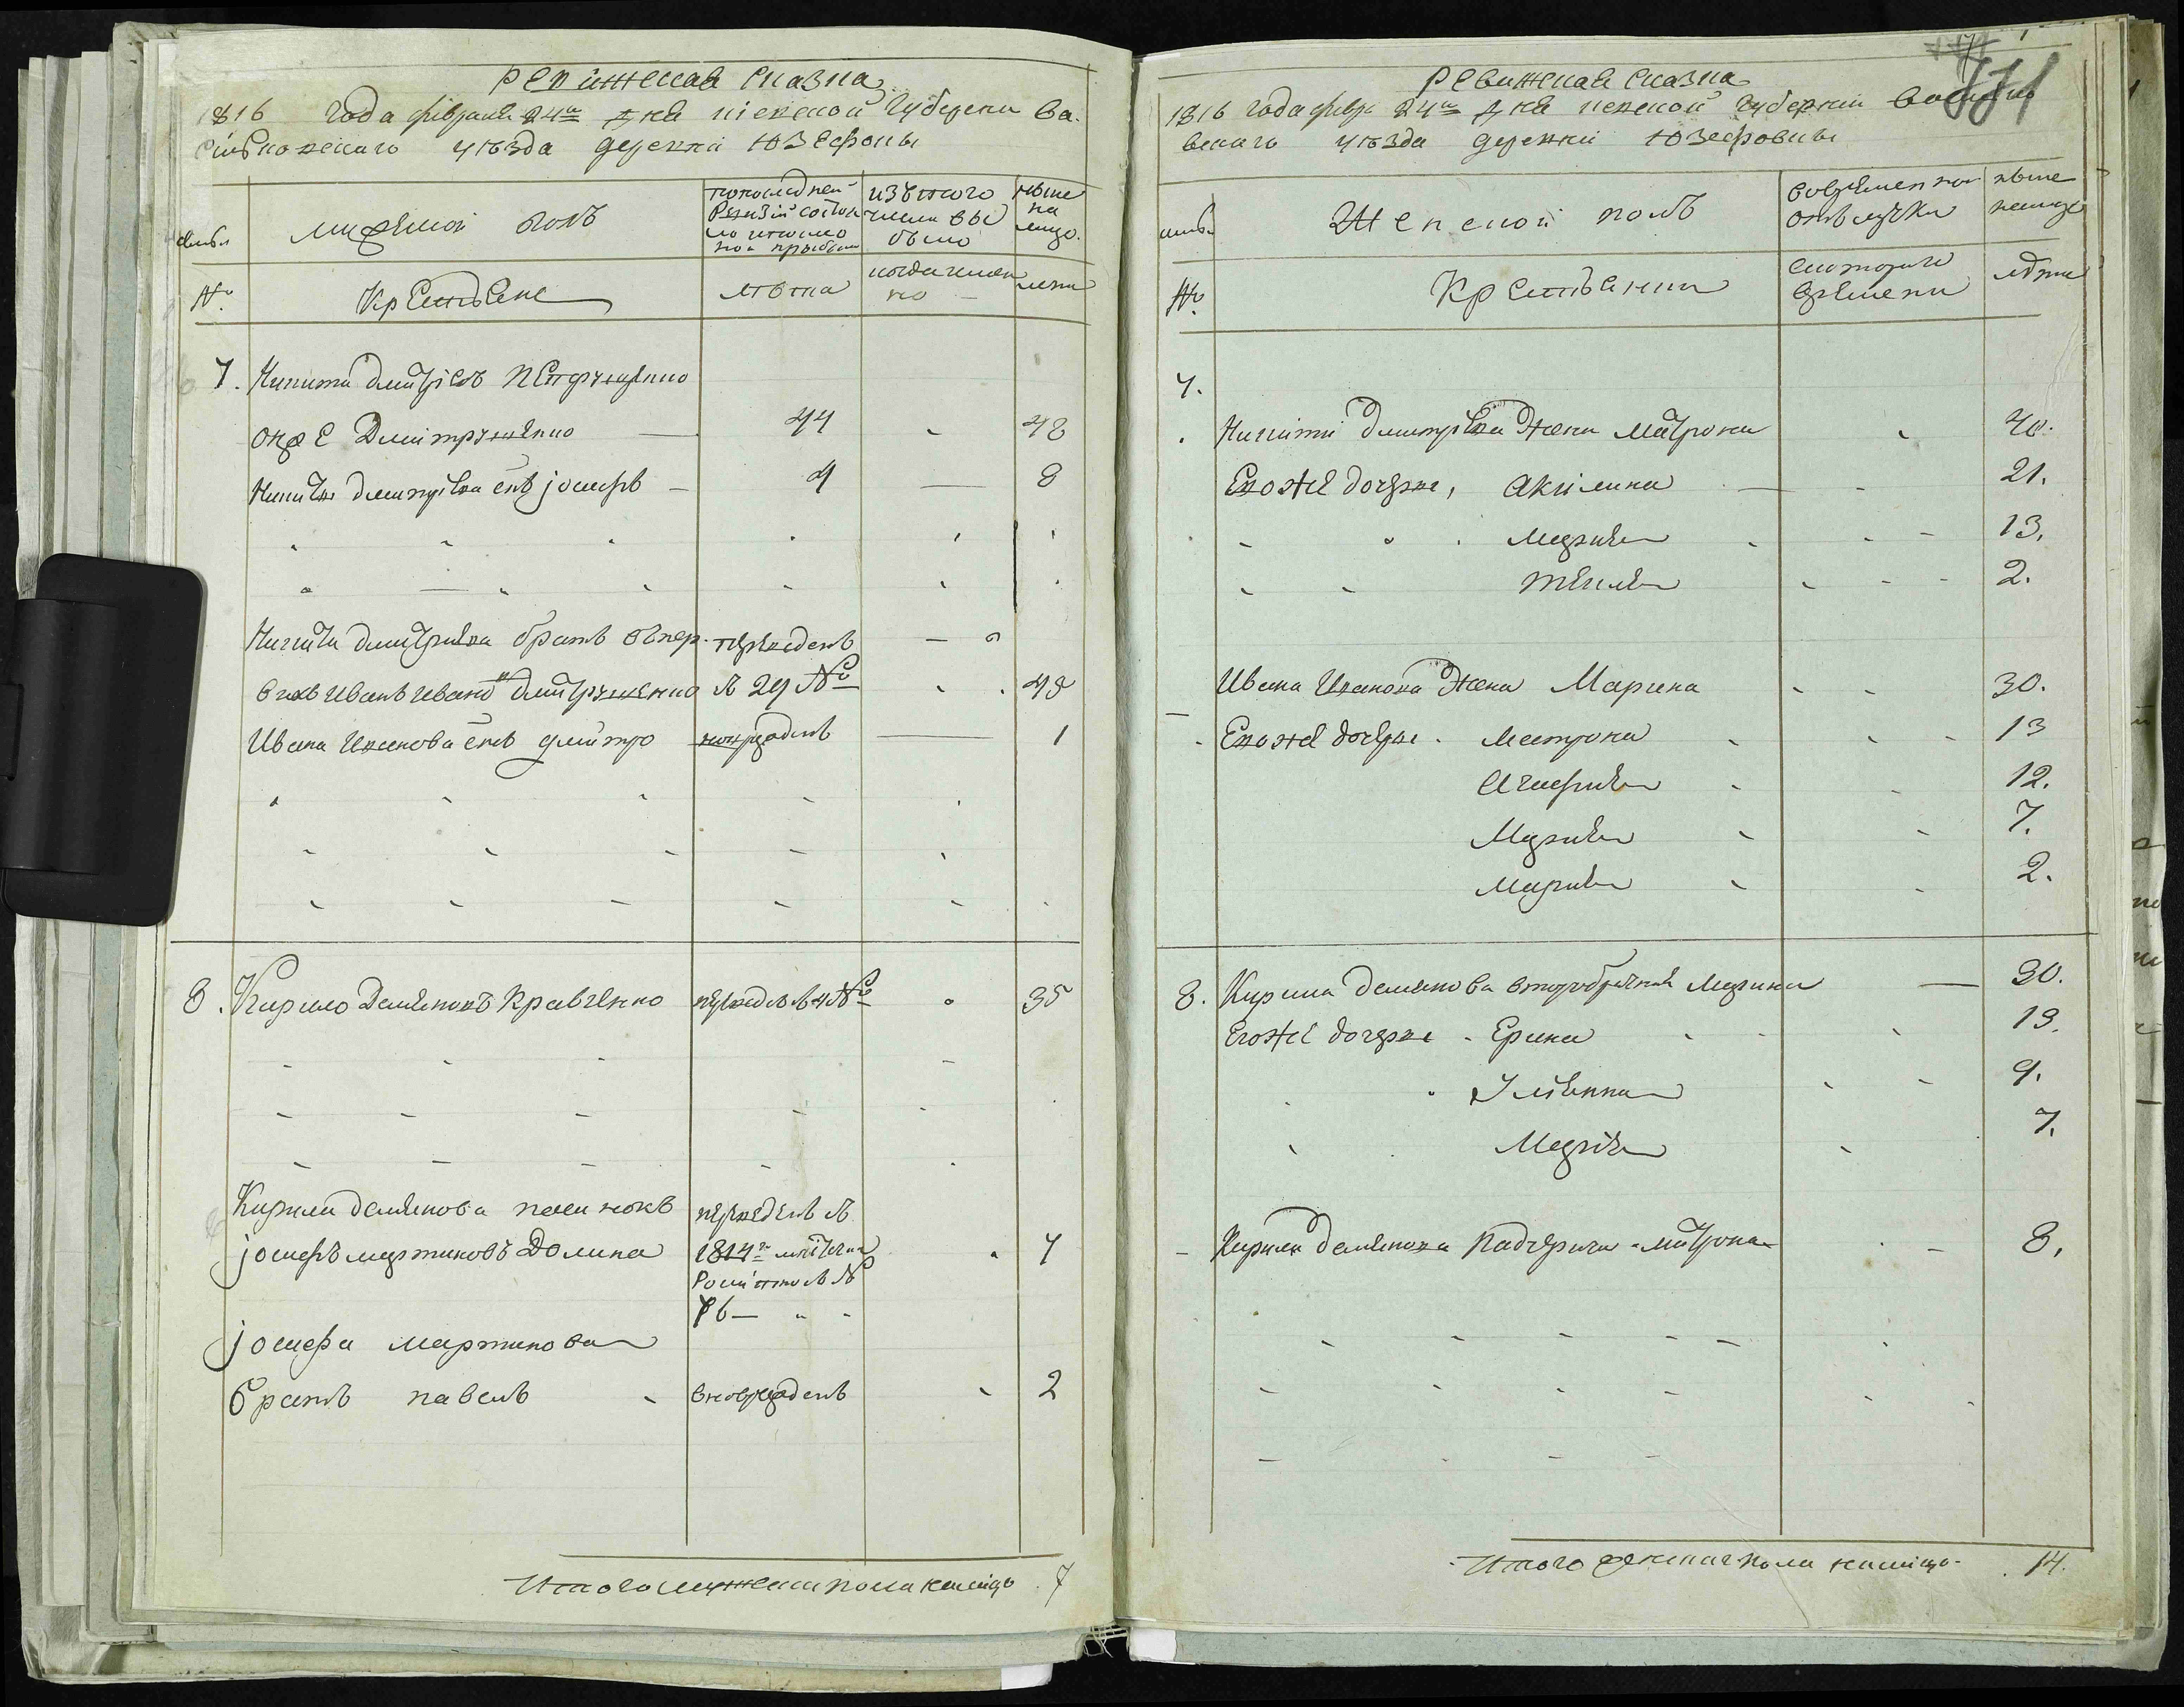 Ревижская сказка
1816 года февраля 24го дня киевской губернии ва-
сильковского уезда деревни Юзефовки
семьи
мужеской полъ
по последней ревизии состояло и после того прибыло
изъ того числа выбыло
ныне на лицо
№
Крестьяне
лѣта
когда именно
лѣта
7. Никита дмитріевъ
онже Дмитрученко — 44 - 48
Никиты дмитріева снъ іосифъ — 4 — 8
Никиты дмитриева братъ переведенъ —
Иванъ Ивановъ Дмитрученко 29 № - 45
Ивана Иванова снъ дмитро новорожденъ — 1
8. Кирило Демяновъ Кравченко 4 № 35
Кирила демянова пасинокъ переведенъ въ
іосифъ мартиновъ Долина 1814го - 7
№
іосифа мартинова
братъ павелъ - вноврожденъ - 2
Итого мужеска пола налицо 7
171
Ревижская сказка
1816 года февр 24го дня киевской губернии василько-
вскаго уезда деревни Юзефовки
семьи
Женской полъ
во временной отлучки
ныне налицо
№
Крестьянки
с которого времени
лѣта
7.
Никиты Дмитріева жена Матрона 40.
Евоже дочери, Акилина — - 21.
Мария - - - 13.
Текля - - - 2.
Ивана Иванова жена Марина - - 30.
Евоже дочери. Матрона - - - 13
Агафия - - 12.
Мария - - 7.
Мария - - 2.
8. Кирила демянова второбрачная Марина — 30.
Евоже дочери - Ерина - - - 13.
Улиянна - - 9.
Мария - 7.
Кирила демянова Падчерица - матрона - - 8.
Итого женска пола налицо. 14.